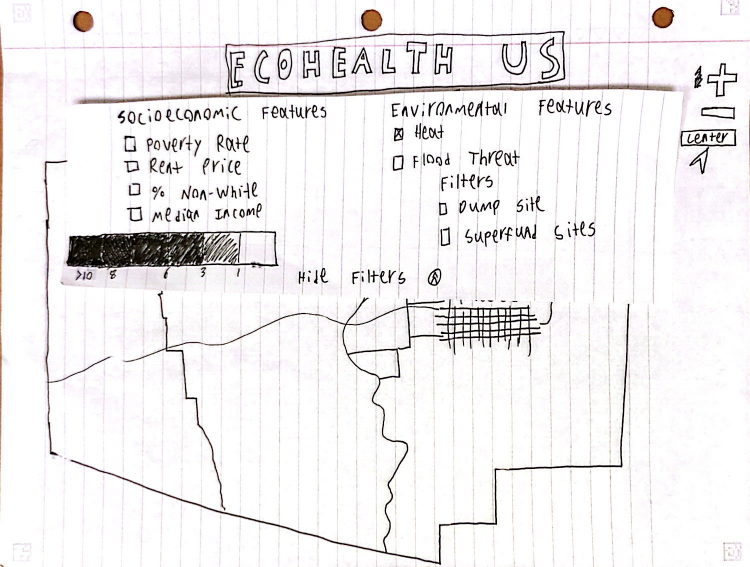 ECOHEALTH US
Socioeconomic Features
Poverty Rate
Rent Price
% Non-White
Median Income
Environmental Features
Heat
Flood Threat
Filters
Dump Site
Superfund Sites
>10 8 6 3 1
Hide Filters
+
-
center